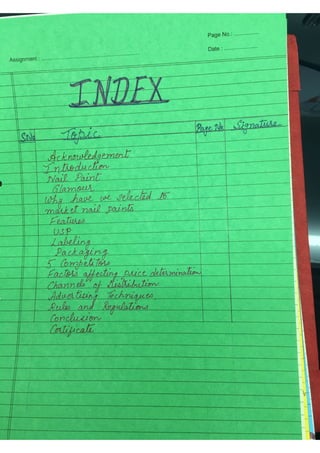 Page No.:
Date :
Assignment :
INDEX
S.No Topic Page No Signature
Acknowledgement
Introduction
Nail Paint
Glamour
Why have we selected to
market nail paints
Features
USP
Labeling
Packaging
5 Competitors
Factors affecting price determination
Channels of Distribution
Advertising Techniques
Rules and Regulations
Conclusion
Certificate